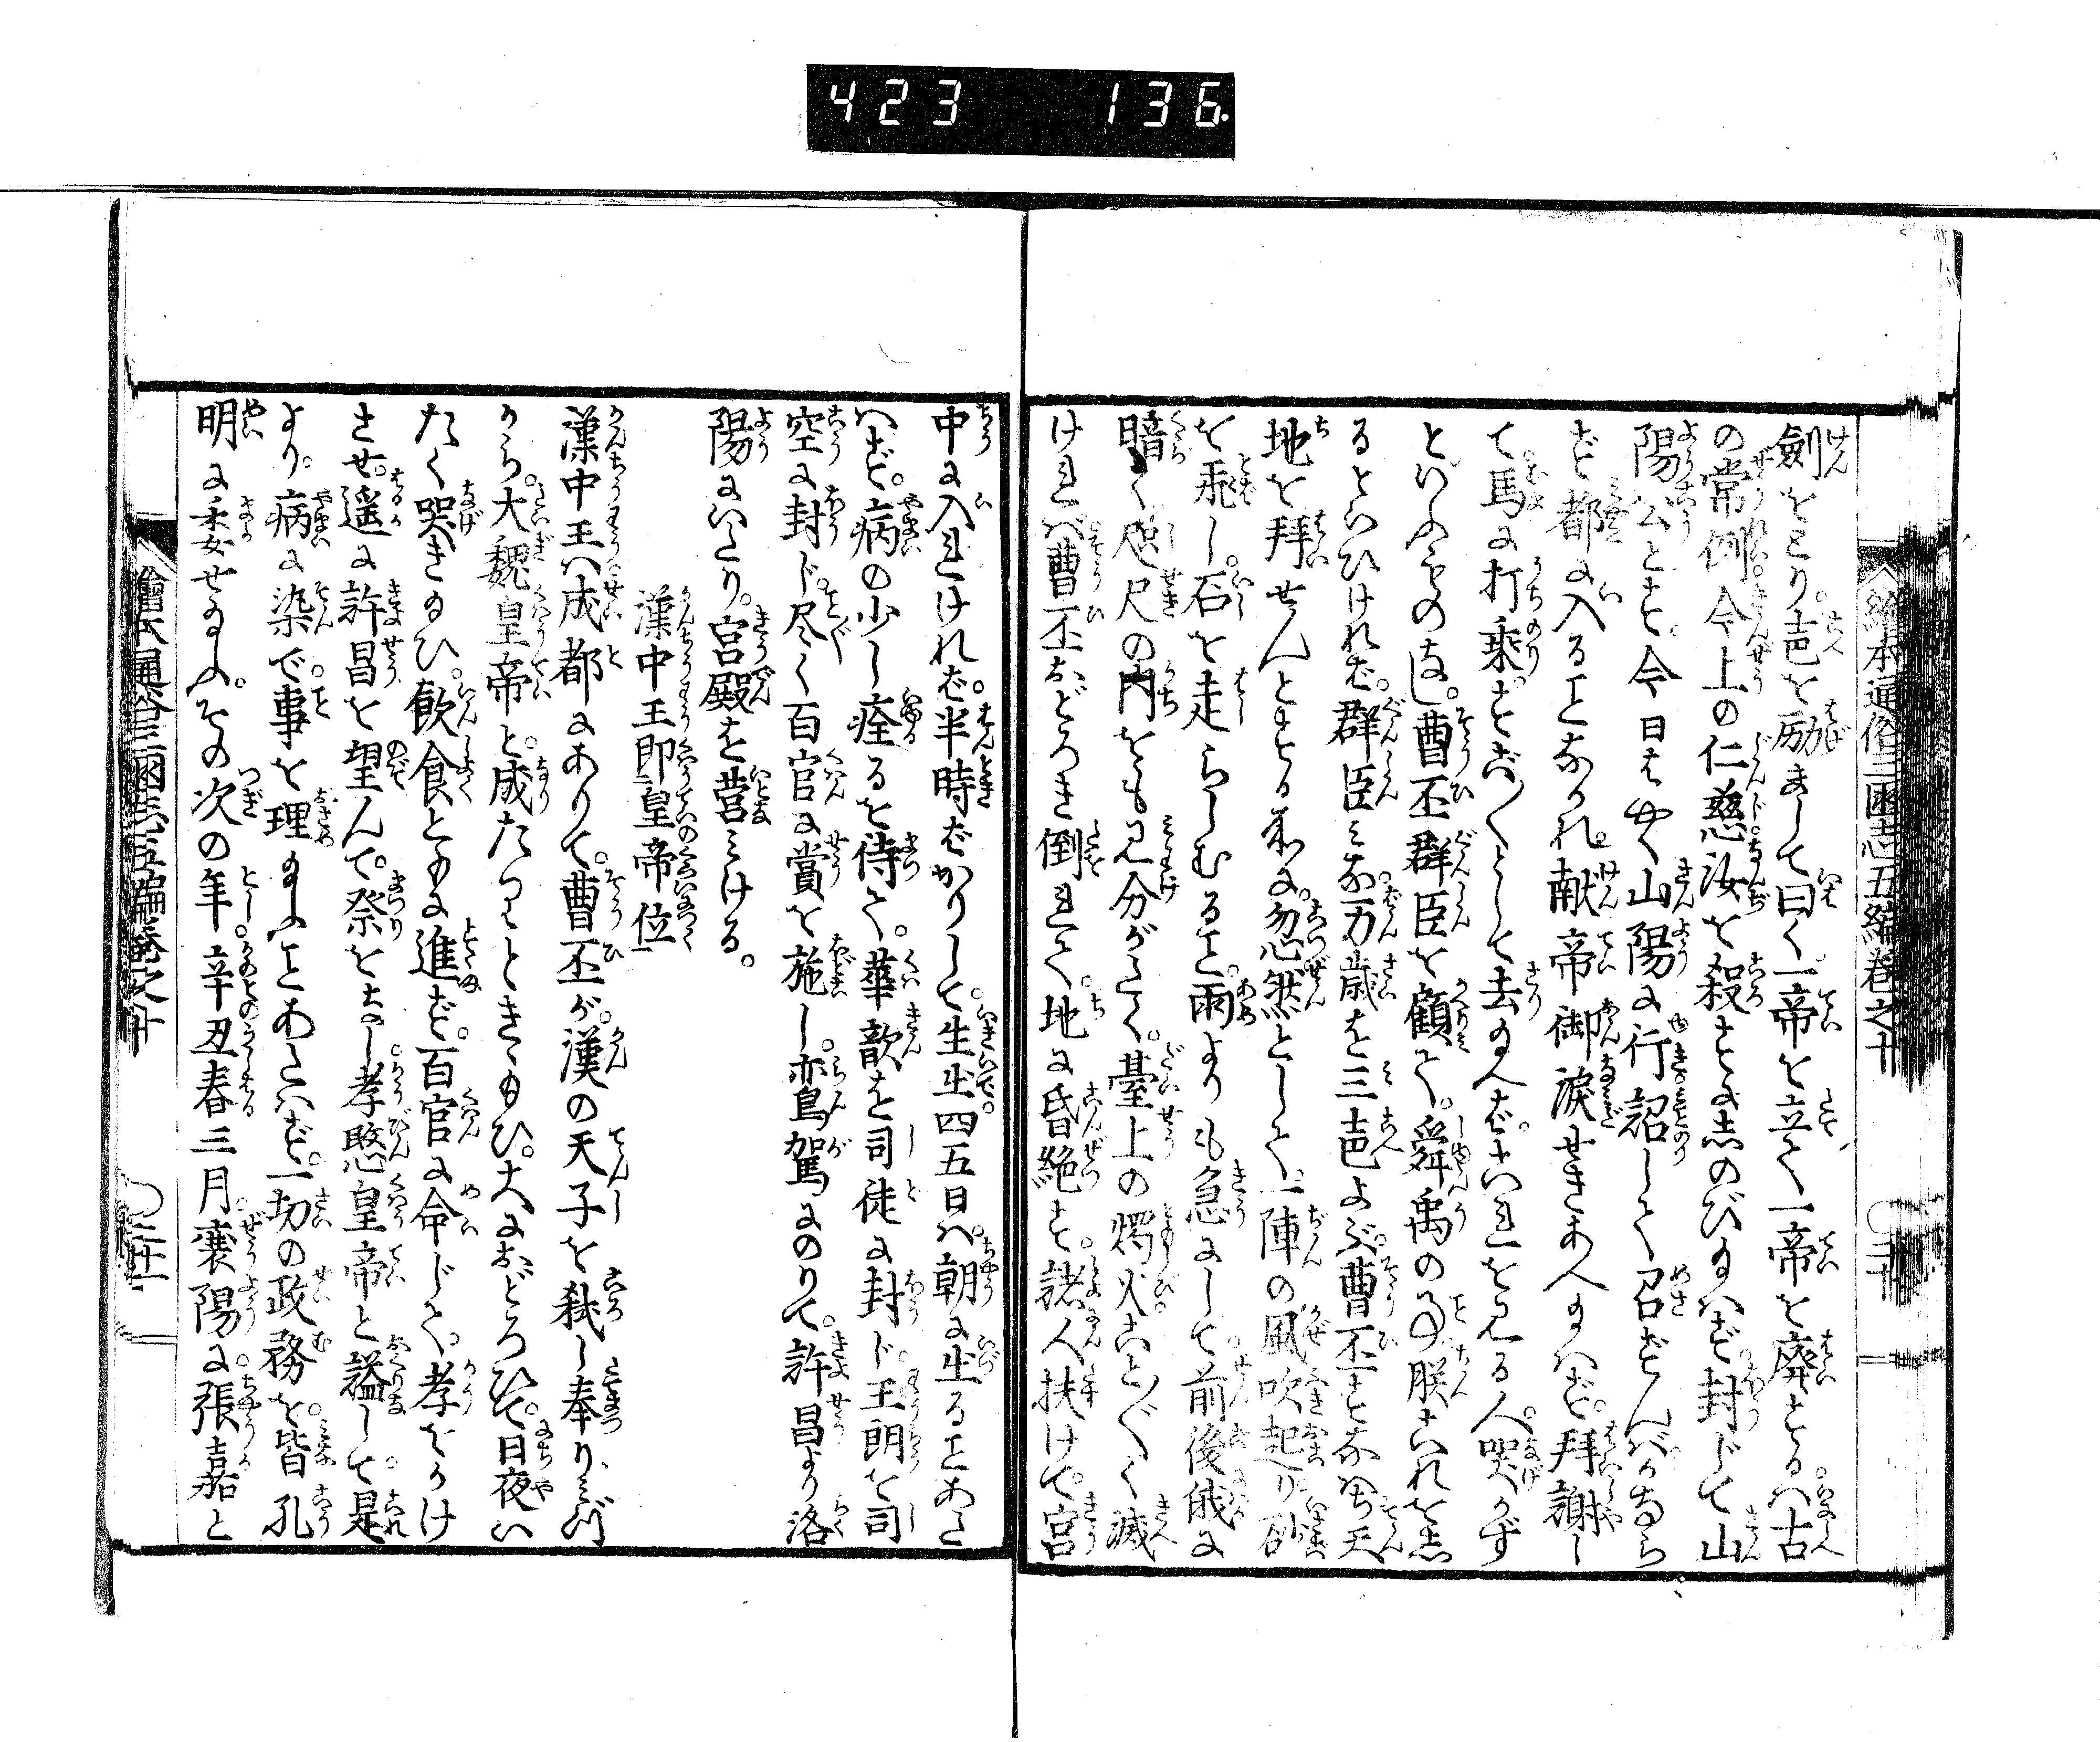 423 136
繪本通俗三國志五編卷之十
劍をとり声を励まして曰く一帝を立て一帝を廃するは古
の常例今上の仁慈汝を殺すに忍のび給はず封じて山
陽公とす今日はやく山陽に行詔して召ずんばかならず
ず都に入ることなかれ献帝御涙せきあへ給はず拝謝し
て馬に打乗すご〱として去給へばこれを見る人哭かず
といふものなし曹丕群臣を顧て舜禹の事朕これを志
るといひければ群臣みな万歳を三声よぶ曹丕すなはち天
地を拝せんとする所に忽然として一陣の風吹起り砂
を飛し石を走らしむること雨よりも急にして前後俄に
暗く咫尺の内をも見分がたく臺上の燭火こと〲く滅
ければ曹丕おどろき倒れて地に昏絶す諸人扶けて宮
中に入れければ半時ばかりして生出四五日は朝に出ることあた
はず病の少し痊るを待て華歆を司徒に封じ王朗を司
空に封じ尽く百官に賞を施し鸞駕にのりて許昌より洛
陽にいたり宮殿を営みける
漢中王即皇帝位
漢中王は成都にありて曹丕が漢の天子を弑し奉りみづ
から大魏皇帝と成たりときゝ給ひ大におどろひて日夜い
たく哭き給ひ飲食ともに進ず百官に命じて孝をかけ
させ遥に許昌を望んで祭をなし孝愍皇帝と謚して是
より病に染で事を理給ふことあたはず一切の政務を皆孔
明に委せ給ふその次の年辛丑春三月襄陽に張嘉と
繪本通俗三國志五編卷之十